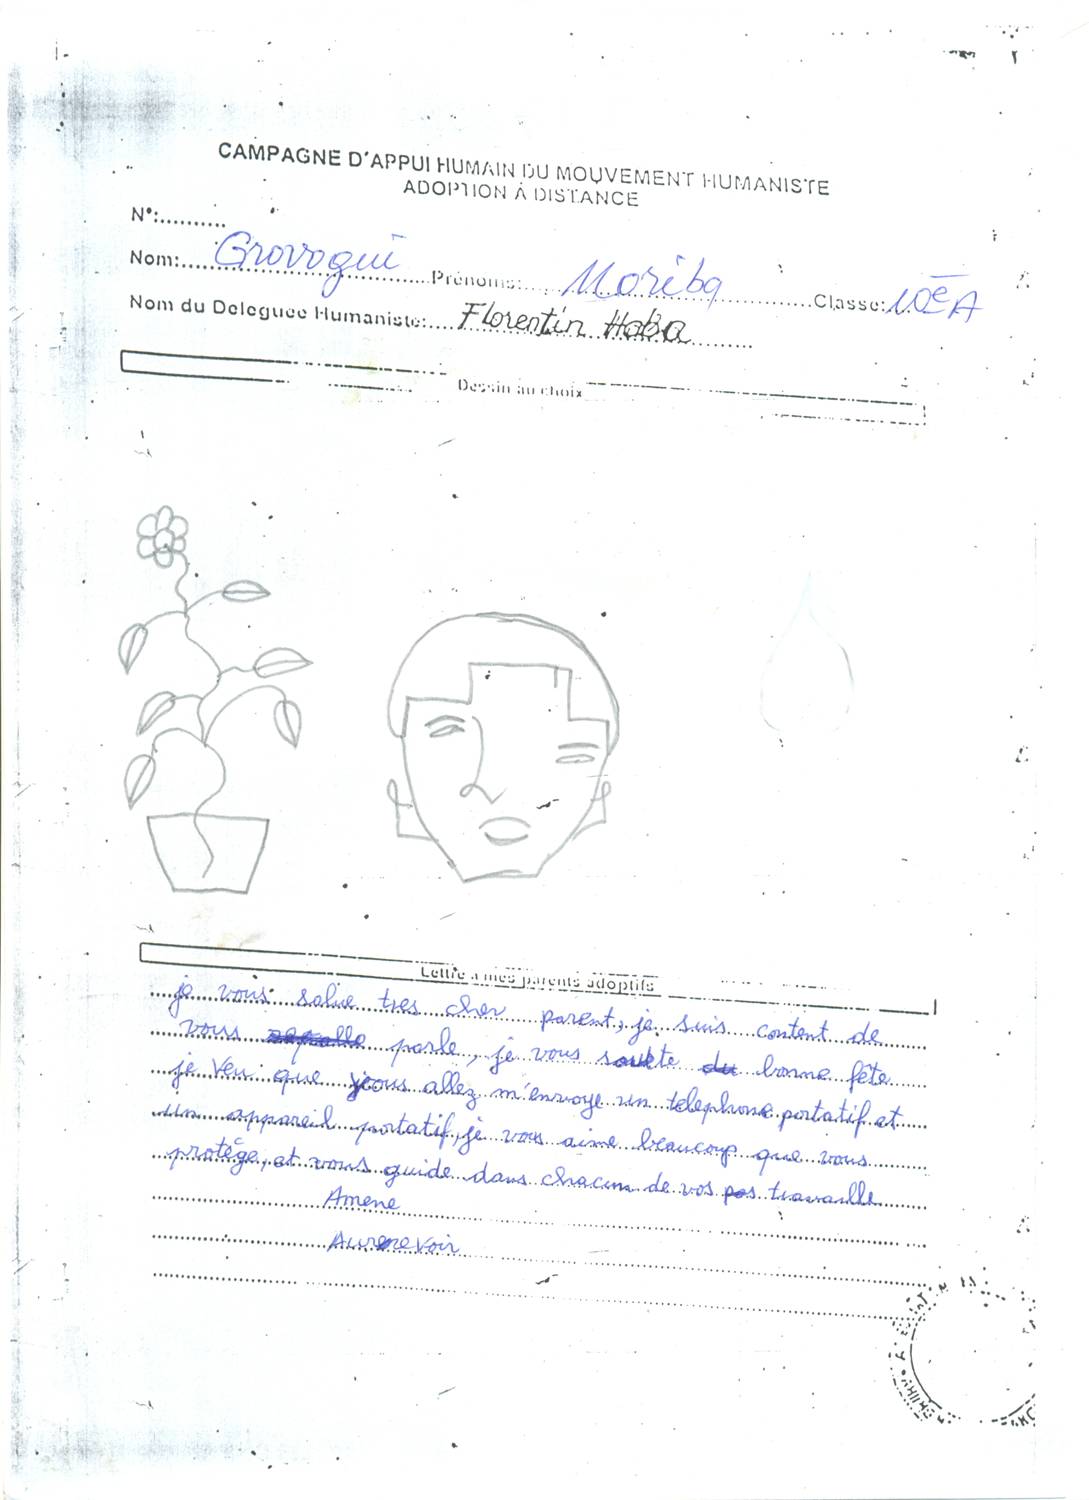 CAMPAGNE D'APPUI HUMAIN DU MOUVEMENT HUMANISTE
ADOPTION À DISTANCE
N°:..........
Nom: Grovogui Prénoms: Moriba Classe: 10e A
Nom du Deleguee Humaniste: Florentin Haba
Dessin au choix
Lettre a mes parents adoptifs
je vous salue tres cher parent, je suis content de
vous parle, je vous souete du bonne fête
je veu que vous allez m'envoye un telephone portatif et
un appareil portatif, je vous aime beaucoup que vous
protège, et vous guide dans chacun de vos travaille
Amene
Aurevoir